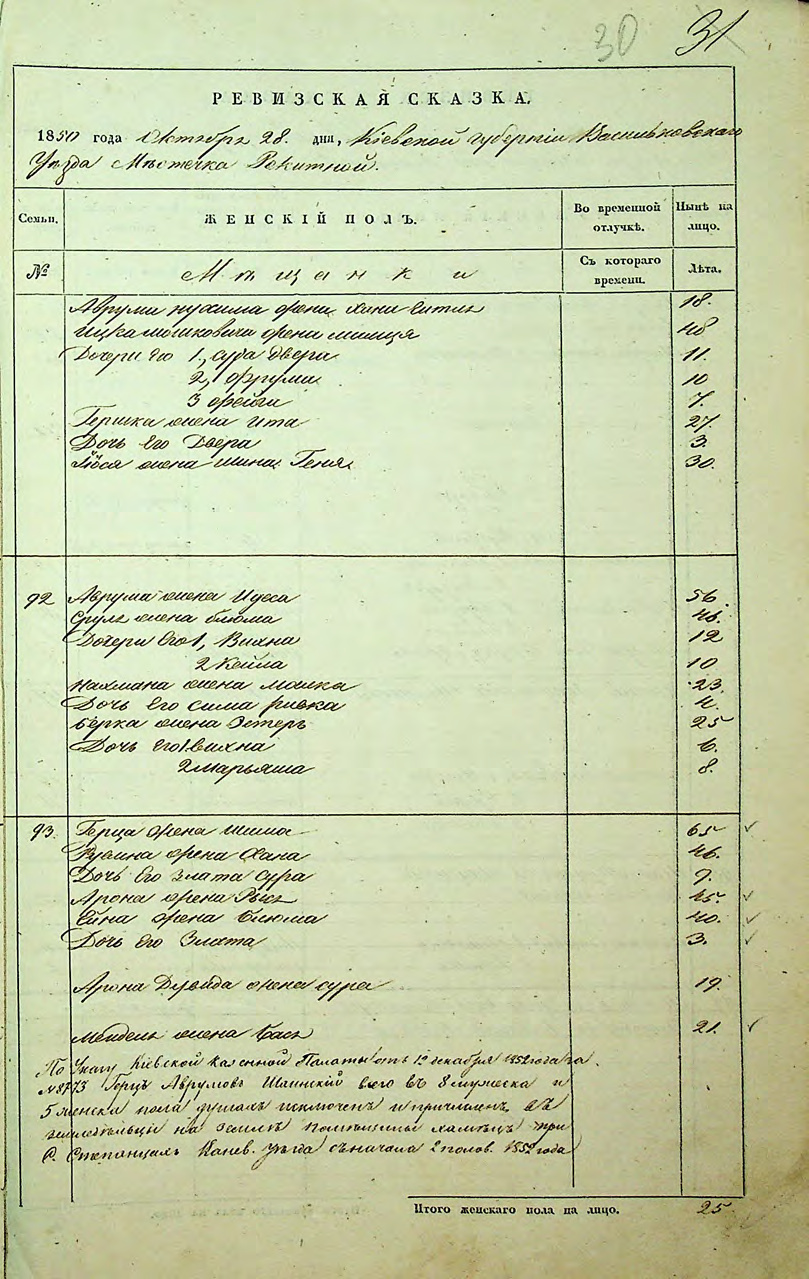 30 31
РЕВИЗСКАЯ СКАЗКА.
1850 года Октября 28. дня, Кіевской губерніи Васильковскаго
Уѣзда Мѣстечка Рокитной.
Семьи. ЖЕНСКІЙ ПОЛЪ. Во временной отлучкѣ. Нынѣ на лицо.
№ Мѣщанки Съ котораго времени. Лѣта.
Аврума Нухима жена Хана 18.
Ицка Мошковича жена 48
Дочери его 1, Сура Двера 11.
2, Фрума 10
3 Фейга 7.
Гершка жена Ита 27.
Дочь Его Двера 3.
жена Шина Геня 30.
92 Аврума жена Идеса 56.
Сруля жена Блюма 46.
Дочери Его 1, Вихна 12
2 Кейла 10
Нахмана жена Малка 23.
Дочь Его Сима Ривка 4.
Берка жена Эстеръ 25
Дочь его 1 Вихна 6.
2 Марьяша 8.
93. Герца жена 65
жена Хана 46.
Дочь Его Злата Сура 9.
Арона жена 45.
жена Блюма 40.
Дочь Его Злата 3.
Арона Дувида жена Сура 19.
Мендель жена Бася 21.
По Указу Кіевской Казенной Палаты отъ декабря 1852 года за
№ 8773 Герцъ Аврумовъ всего въ 8 мужеска и
5 женска пола душахъ исключенъ и причисленъ въ
земледѣльцы на землѣ помѣщицы при
С. Степанцахъ Канев. уѣзда съ начала 2 полов. 1852 года
Итого женскаго пола на лицо. 25